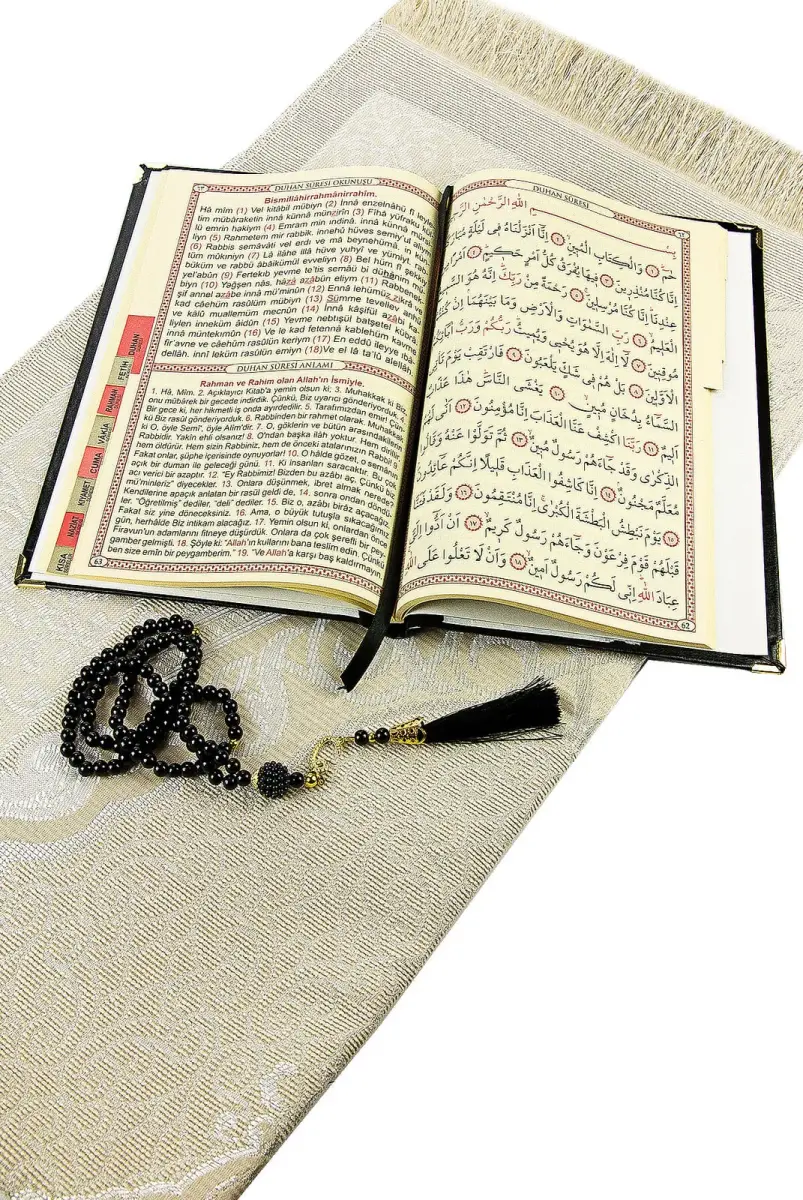 ٦٣
DUHAN SÛRESİ OKUNUŞU
Bismillâhirrahmânirrahîm.
Hâ mîm (1) Vel kitâbil mübiyn (2) İnnâ enzelnâhü fî leyle
tim mübâraketin innâ künnâ münzirîn (3) Fîhâ yüfraku kül
lü emrin hakiym (4) Emram min ındinâ. innâ künnâ mürsi
liyn (5) Rahmetem mir rabbik. innehû hüves semiy'ul aliym
(6) Rabbis semâvâti vel erdı ve mâ beynehümâ. in kün
tüm mûkıniyn (7) Lâ ilâhe illâ hüve yuhyî ve yümiyt. rab
büküm ve rabbü âbâikümül evveliyn (8) Bel hüm fî şekkiy
yel'abûn (9) Fertekıb yevme te'tis semâü bi dühânim mü
biyn (10) Yağşen nâs, hâzâ azâbün eliym (11) Rabbenek
şif annel azâbe innâ mü'minûn (12) Ennâ lehümüz zikrâ ve
kad câehüm rasûlüm mübiyn (13) Sümme tevellev anhü
ve kâlû muallemüm mecnûn (14) İnnâ kâşifül azâbi ka
liylen inneküm âidûn (15) Yevme nebtışül batşetel kübrâ,
innâ müntekımûn (16) Ve le kad fetennâ kablehüm kavme
fir'avne ve câehüm rasûlün keriym (17) En eddû ileyye ıbâ
dellâh. innî leküm rasûlün emiyn (18)Ve el lâ ta'lû alellâh
DUHAN SÛRESİ ANLAMI
Rahman ve Rahim olan Allah'ın İsmiyle.
1. Hâ, Mîm. 2. Apaçıkıcı Kitab'a yemin olsun ki; 3. Muhakkak ki Biz,
onu mübârek bir gecede indirdik. Çünkü, Biz uyarıcı gönderiyorduk. 4.
Bir gece ki, her hikmetli iş onda ayırdedilir. 5. Tarafımızdan emir! Çün
kü Biz rasûl gönderiyorduk. 6. Rabbinden bir rahmet olarak. Muhakkak
ki O, öyle Semî', öyle Alîm'dir. 7. O, göklerin ve bütün arasındakilerin
Rabbidir. Yakîn ehli olsanız! 8. O'ndan başka ilâh yoktur. Hem diriltir,
hem öldürür. Hem sizin Rabbiniz, hem de önceki atalarınızın Rabbi! 9.
Fakat onlar, şüphe içerisinde oynuyorlar! 10. O hâlde gözet, o semânın
açık bir duman ile geleceği günü. 11. Ki insanları saracaktır. Bu çok
acı verici bir azaptır. 12. "Ey Rabbimiz! Bizden bu azâbı aç, Çünkü biz
mü'minleriz" diyecekler. 13. Onlara düşünmek, ibret almak nerede?
Kendilerine apaçık anlatan bir rasûl geldi de, 14. sonra ondan döndü-
ler. "Öğretilmiş" dediler, "deli" dediler. 15. Biz o, azâbı birâz açacağız.
Fakat siz yine döneceksiniz. 16. Ama, o büyük tutuşla sıkacağımız
gün, herhâlde Biz intikam alacağız. 17. Yemin olsun ki, onlardan önce
Firavun'un adamlarını fitneye düşürdük. Onlara da çok şerefli bir pey
gamber gelmişti. 18. Şöyle ki: "Allah'ın kullarını bana teslim edin. Çünkü
ben size emîn bir peygamberim." 19. "Ve Allah'a karşı baş kaldırmayın.
63
DUHAN
FETİH
RAHMAN
VÂKIA
CUMA
KIYAMET
NAZİAT
KISA
DUHAN SÛRESİ
٦٢
بِسْمِ اللّٰهِ الرَّحْمٰنِ الرَّ
حٰمٓ ﴿١﴾ وَالْكِتَابِ الْمُبٖينِ ﴿٢﴾ اِنَّٓا اَنْزَلْنَاهُ فٖي لَيْلَةٍ مُبَارَ
اِنَّا كُنَّا مُنْذِرٖينَ ﴿٣﴾ فٖيهَا يُفْرَقُ كُلُّ اَمْرٍ حَكٖيمٍ ﴿٤﴾ اَمْرًا
عِنْدِنَا اِنَّا كُنَّا مُرْسِلٖينَ ﴿٥﴾ رَحْمَةً مِنْ رَبِّكَ اِنَّهُ هُوَ السَّ
الْعَلٖيمُ ﴿٦﴾ رَبِّ السَّمٰوَاتِ وَالْاَرْضِ وَمَا بَيْنَهُمَا اِنْ كُ
مُوقِنٖينَ ﴿٧﴾ لَٓا اِلٰهَ اِلَّا هُوَ يُحْيٖ وَيُمٖيتُ رَبُّكُمْ وَرَبُّ اٰبَٓائِ
الْاَوَّلٖينَ ﴿٨﴾ بَلْ هُمْ فٖي شَكٍّ يَلْعَبُونَ ﴿٩﴾ فَارْتَقِبْ يَوْمَ تَأْتِ
السَّمَٓاءُ بِدُخَانٍ مُبٖينٍ ﴿١٠﴾ يَغْشَى النَّاسَ هٰذَا عَذَا
اَلٖيمٌ ﴿١١﴾ رَبَّنَا اكْشِفْ عَنَّا الْعَذَابَ اِنَّا مُؤْمِنُونَ ﴿١٢﴾ اَنّٰى لَ
الذِّكْرٰى وَقَدْ جَٓاءَهُمْ رَسُولٌ مُبٖينٌ ﴿١٣﴾ ثُمَّ تَوَلَّوْا عَنْهُ وَقَالُ
مُعَلَّمٌ مَجْنُونٌ ﴿١٤﴾ اِنَّا كَاشِفُوا الْعَذَابِ قَلٖيلًا اِنَّكُمْ عَٓائِدُونَ
﴿١٥﴾ يَوْمَ نَبْطِشُ الْبَطْشَةَ الْكُبْرٰى اِنَّا مُنْتَقِمُونَ ﴿١٦﴾ وَلَقَدْ فَتَنَّا
قَبْلَهُمْ قَوْمَ فِرْعَوْنَ وَجَٓاءَهُمْ رَسُولٌ كَرٖيمٌ ﴿١٧﴾ اَنْ اَدُّٓوا اِلَيَّ
عِبَادَ اللّٰهِ اِنّٖي لَكُمْ رَسُولٌ اَمٖينٌ ﴿١٨﴾ وَاَنْ لَا تَعْلُوا عَلَى اللّٰهِ
62